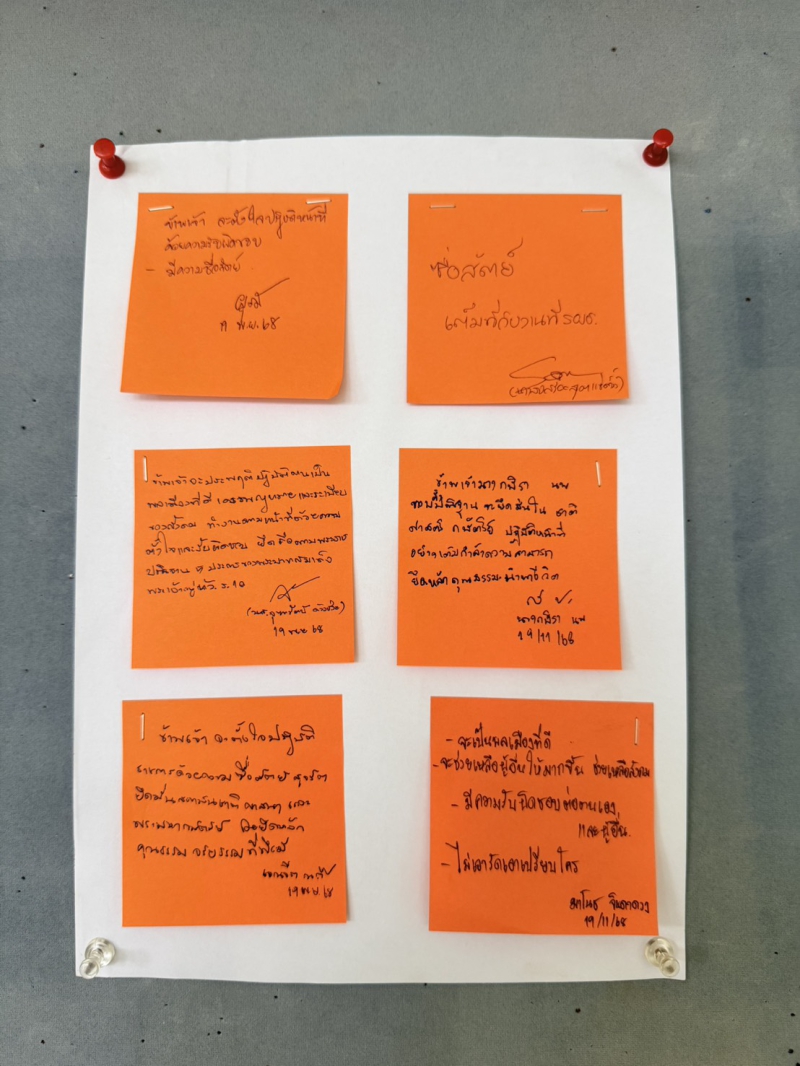 ข้าพเจ้า จะตั้งใจปฏิบัติหน้าที่
ด้วยความรับผิดชอบ
- มีความซื่อสัตย์
19 พ.ย. 68
ซื่อสัตย์
เต็มที่กับงานที่
ข้าพเจ้าจะประพฤติปฏิบัติตนเป็น
พลเมืองที่ดี เคารพกฎหมายและระเบียบ
ของสังคม ทำงานตามหน้าที่ด้วยความ
ตั้งใจและรับผิดชอบ ยึดถือตามพระราช
ปณิธาน ของพระบาทสมเด็จ
พระเจ้าอยู่หัว ร.10
19 พย 68
ข้าพเจ้านาง
ขอตั้งปณิธาน จะยึดมั่นใน ชาติ
ศาสน์ กษัตริย์ ปฏิบัติหน้าที่
อย่างเต็มกำลังความสามารถ
ยึดหลักคุณธรรมนำพาชีวิต
19/11/68
ข้าพเจ้า จะตั้งใจปฏิบัติ
ราชการด้วยความ ซื่อสัตย์ สุจริต
ยึดมั่นสถาบันชาติ ศาสนา และ
พระมหากษัตริย์ และยึดหลัก
คุณธรรม จริยธรรม ที่พึงมี
19 พ.ย. 68
- จะเป็นพลเมืองที่ดี
- จะช่วยเหลือผู้อื่นให้มากขึ้น ช่วยเหลือสังคม
- มีความรับผิดชอบต่อตนเอง
และผู้อื่น.
- ไม่เอารัดเอาเปรียบใคร
มาโนช จินดาดวง
19/11/68